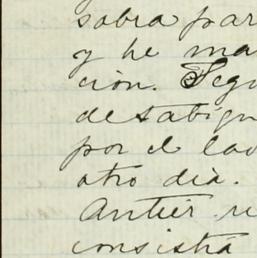 sobra par
y he ma
ción. Segu
desabign
por el lad
otro dia.
Antier r
consistia